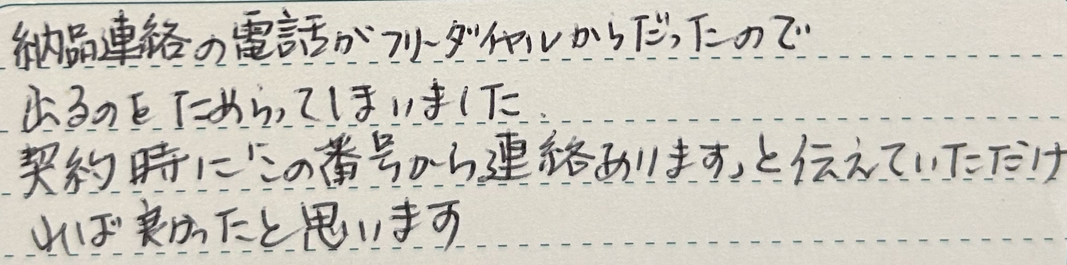 納品連絡の電話がフリーダイヤルからだったので
出るのをためらってしまいました.
契約時に「この番号から連絡あります」と伝えていただけ
れば良かったと思います